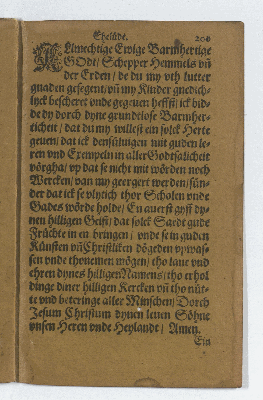 Eheluͤde. 204
ALmechtige Ewige Barmhertige
GODt / Schepper Hemmels vñ
der Erden / de du my vth lutter
gnaden gesegent / vñ my Kinder gnedich-
lyck bescheret vnde gegeuen heffst / ick bid-
de dy dorch dyne grundtlose Barmher-
ticheit / dat du my willest ein solck Herte
geuen / dat ick densüluigen mit guden le-
ren vnd Exempeln in aller Godtsalicheit
vörgha / vp dat se nicht mit wörden noch
Wercken / van my geergert werden / sün-
der dat ick se vlytich thor Scholen vnde
Gades wörde holde / Du auerst gyff dy-
nen hilligen Geist / dat solck Saedt gude
Früchte in en bringen / vnde se in guden
Künsten vñ Christliken dögeden vpwas-
sen vnde thonemen mögen / tho laue vnd
ehren dynes hilligen Namens / tho erhol
dinge diner hilligen Kercken vñ tho nüt-
te vnd beteringe aller Minschen / Dorch
Jesum Christum dynen leuen Söhne
vnsen Heren vnde Heylandt / Amen.
Ein